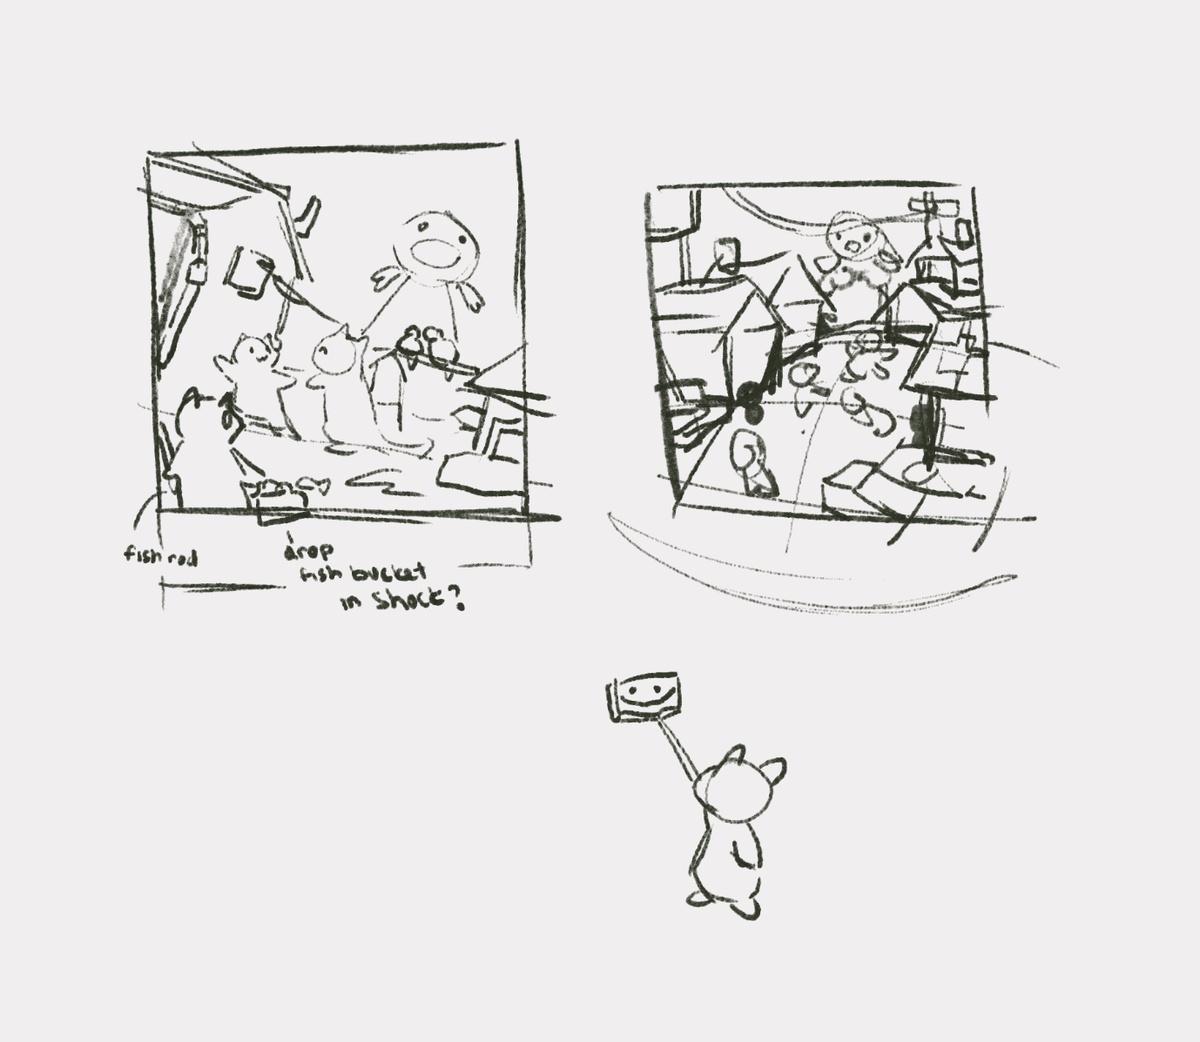 fish rod
drop
fish bucket
in shock?